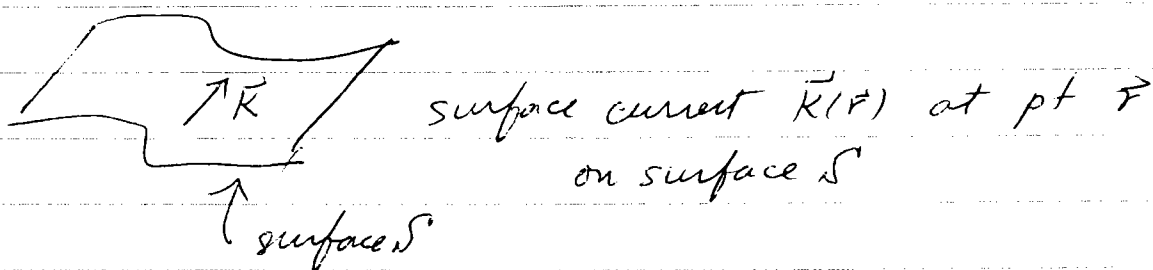 K⃗
surface current K⃗(r⃗) at pt r⃗
on surface S
surface S